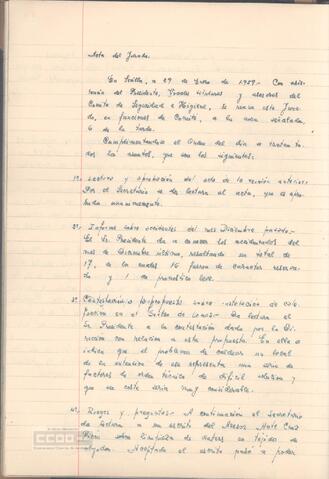 Acta del Jurado.
En Sevilla, a 29 de Enero de 1959.- Con asis-
tencia del Presidente, Vocales titulares y asesores del
Comité de Seguridad e Higiene, se reune este Jura-
do, en funciones de Comité, a la hora señalada,
6 de la tarde.
Cumplimentandose el Orden del dia a
dos los asuntos, que son los siguientes:
1º.- Lectura y aprobación del acta de la reunión anterior.-
Por el Secretario se da lectura al acta, que es apro-
bada unanimemente.
2º.- Informe sobre accidentes del mes Diciembre pasado.-
El Sr. Presidente da a conocer los accidentados del
mes de Diciembre último, resultando un total de
17, de los cuales 16 fueron de caracter reserva-
do y 1 de pronostico leve.
3º.- Contestación propuesta sobre instalación de cale-
facción en el Salón de .- Da lectura el
Sr. Presidente a la contestación dada por la Di-
rección con relación a esta propuesta. En ella se
indica que el problema de caldear un local
de la extension de ese representa una serie de
factores de orden técnico de dificil solución y
que su coste sería muy considerable.
4º.- Ruegos y preguntas.- A continuación el Secretario
da lectura a un escrito del Asesor
sobre limpieza de waters en tejidos de
algodon. Aceptado el escrito pasó a poder
CCOO